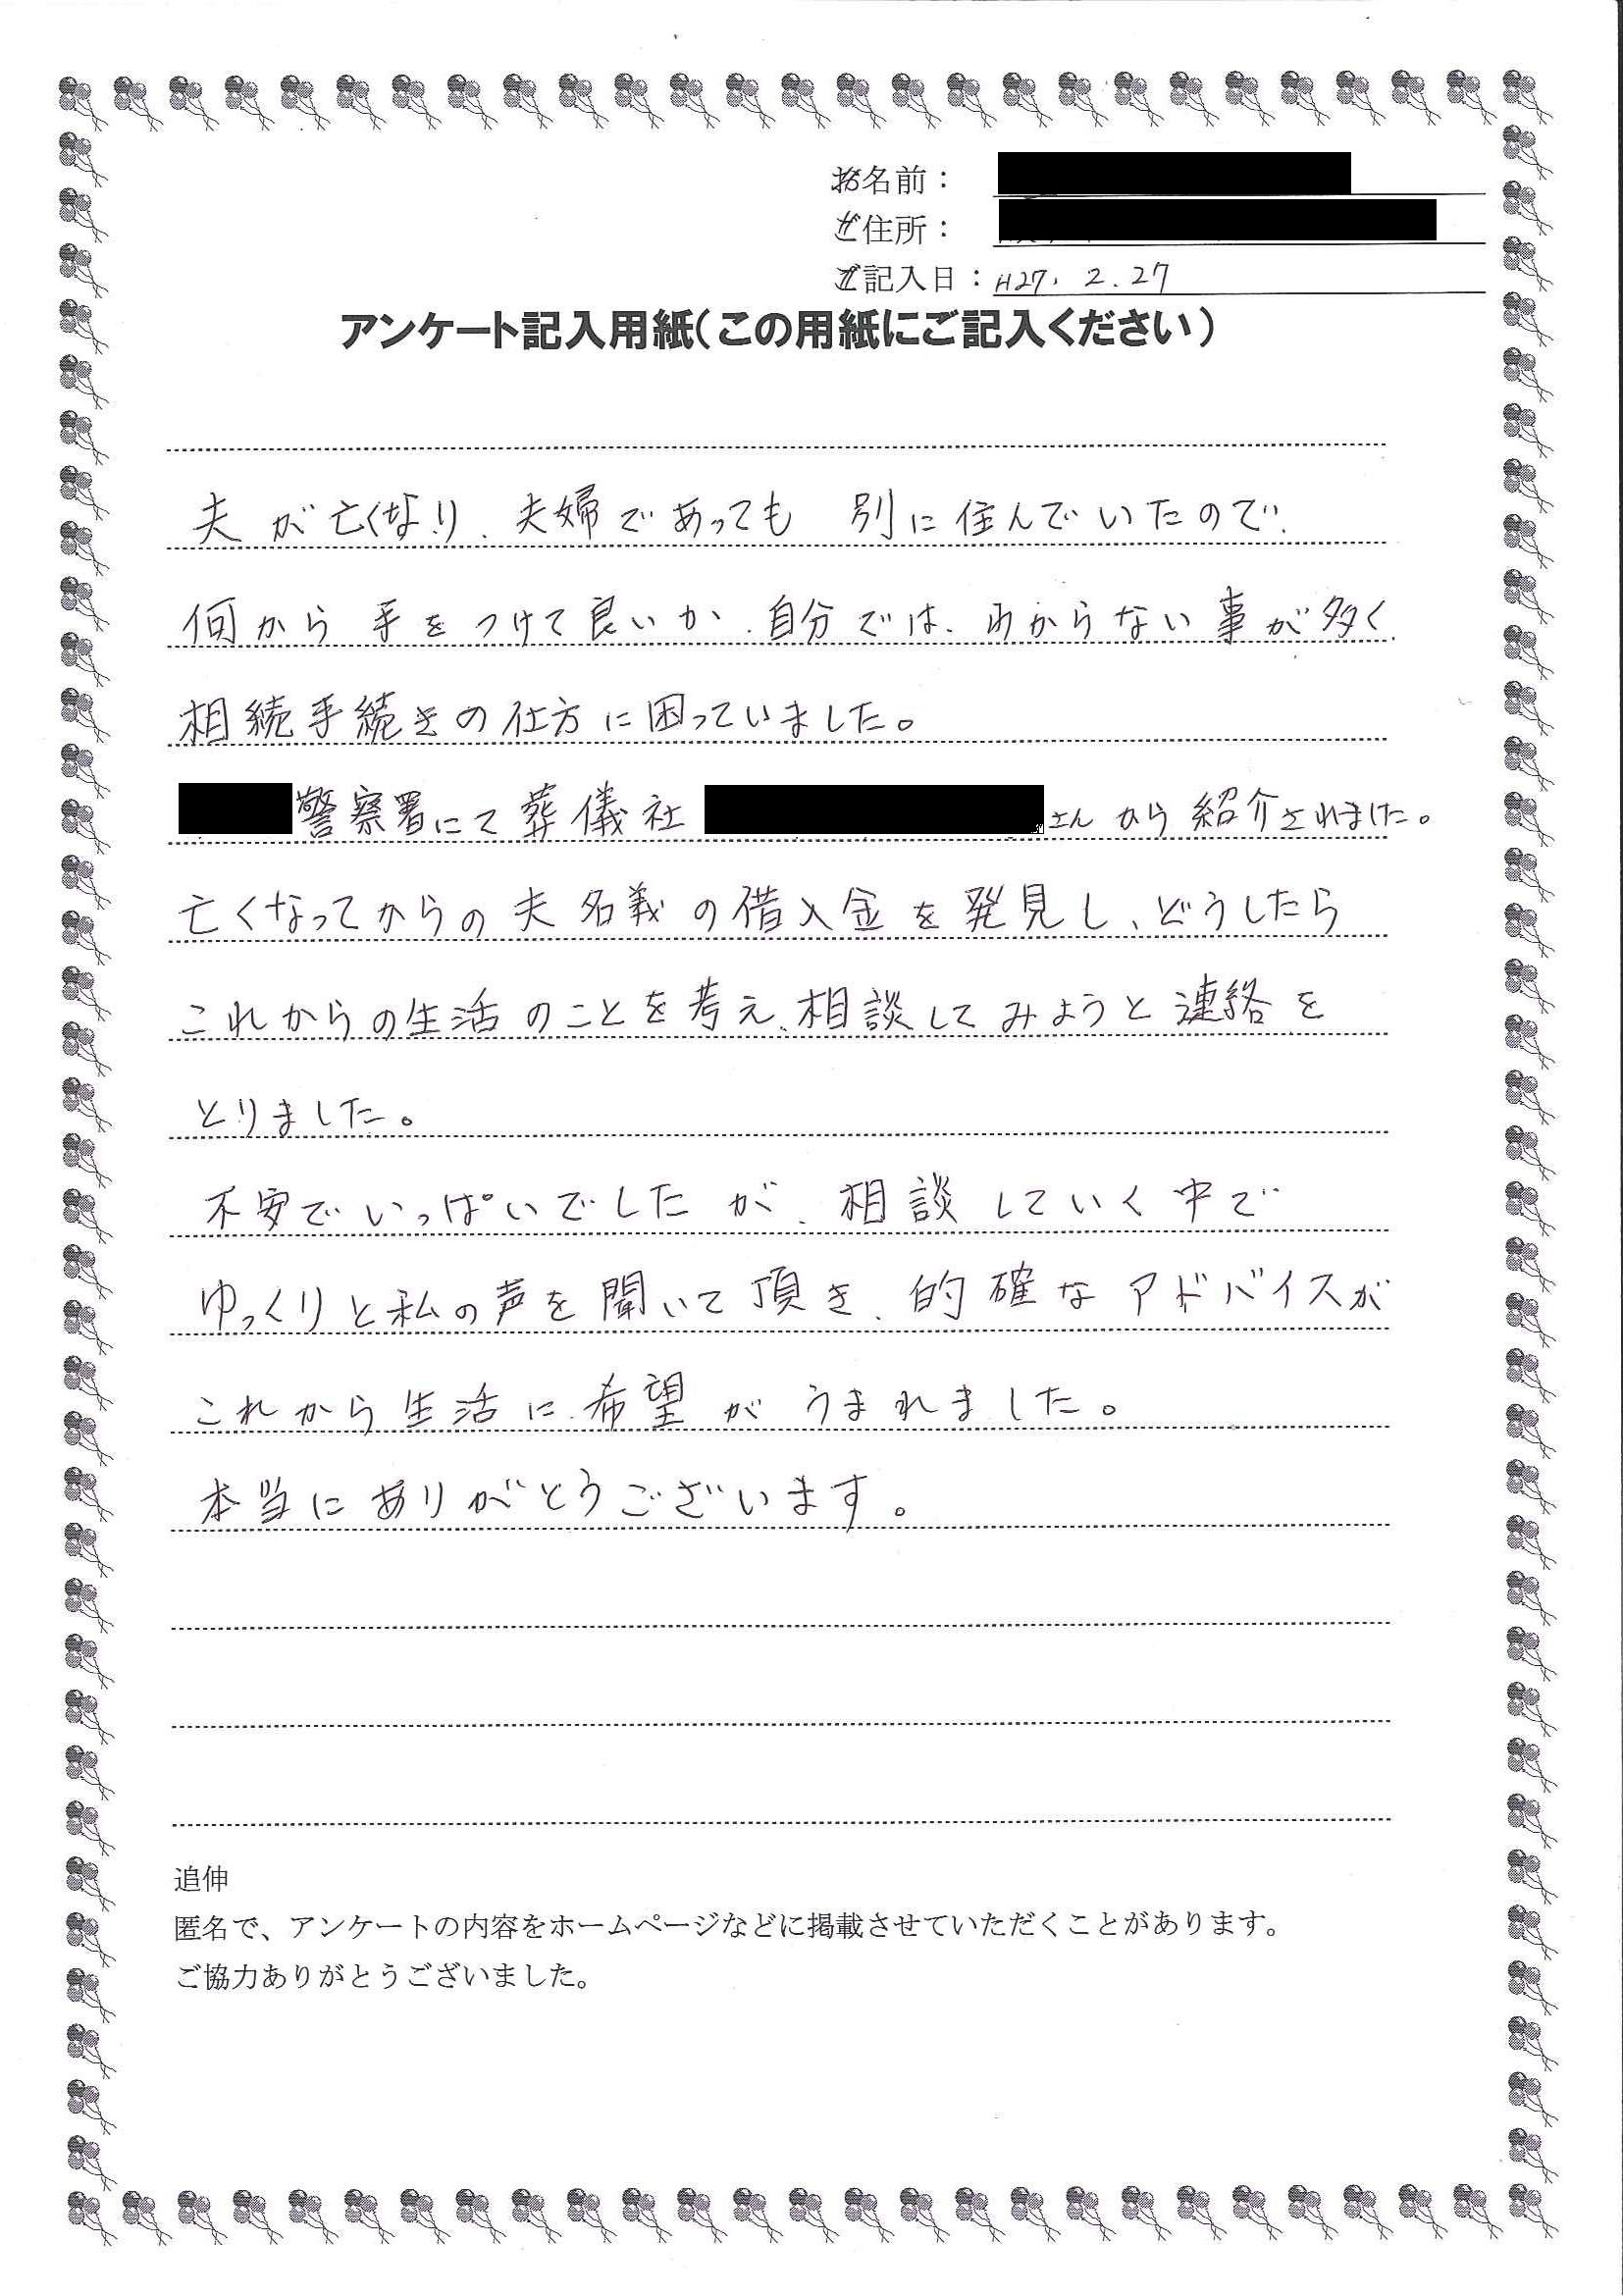 お名前：
ご住所：
ご記入日：H27. 2. 27
アンケート記入用紙（この用紙にご記入ください）
夫が亡くなり、夫婦であっても 別に住んでいたので、
何から手をつけて良いか、自分では、わからない事が多く、
相続手続きの仕方に困っていました。
警察署にて葬儀社 さんから紹介されました。
亡くなってからの夫名義の借入金を発見し、どうしたら
これからの生活のことを考え、相談してみようと連絡を
とりました。
不安でいっぱいでしたが、相談していく中で
ゆっくりと私の声を聞いて頂き、的確なアドバイスが
これから生活に希望がうまれました。
本当にありがとうございます。
追伸
匿名で、アンケートの内容をホームページなどに掲載させていただくことがあります。
ご協力ありがとうございました。